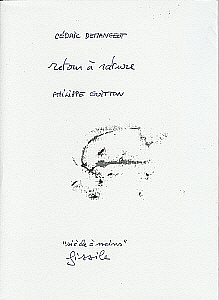 CÉDRIC DEMANGEOT
retour à nature
PHILIPPE GUITTON
"vié la à moins"
fissile